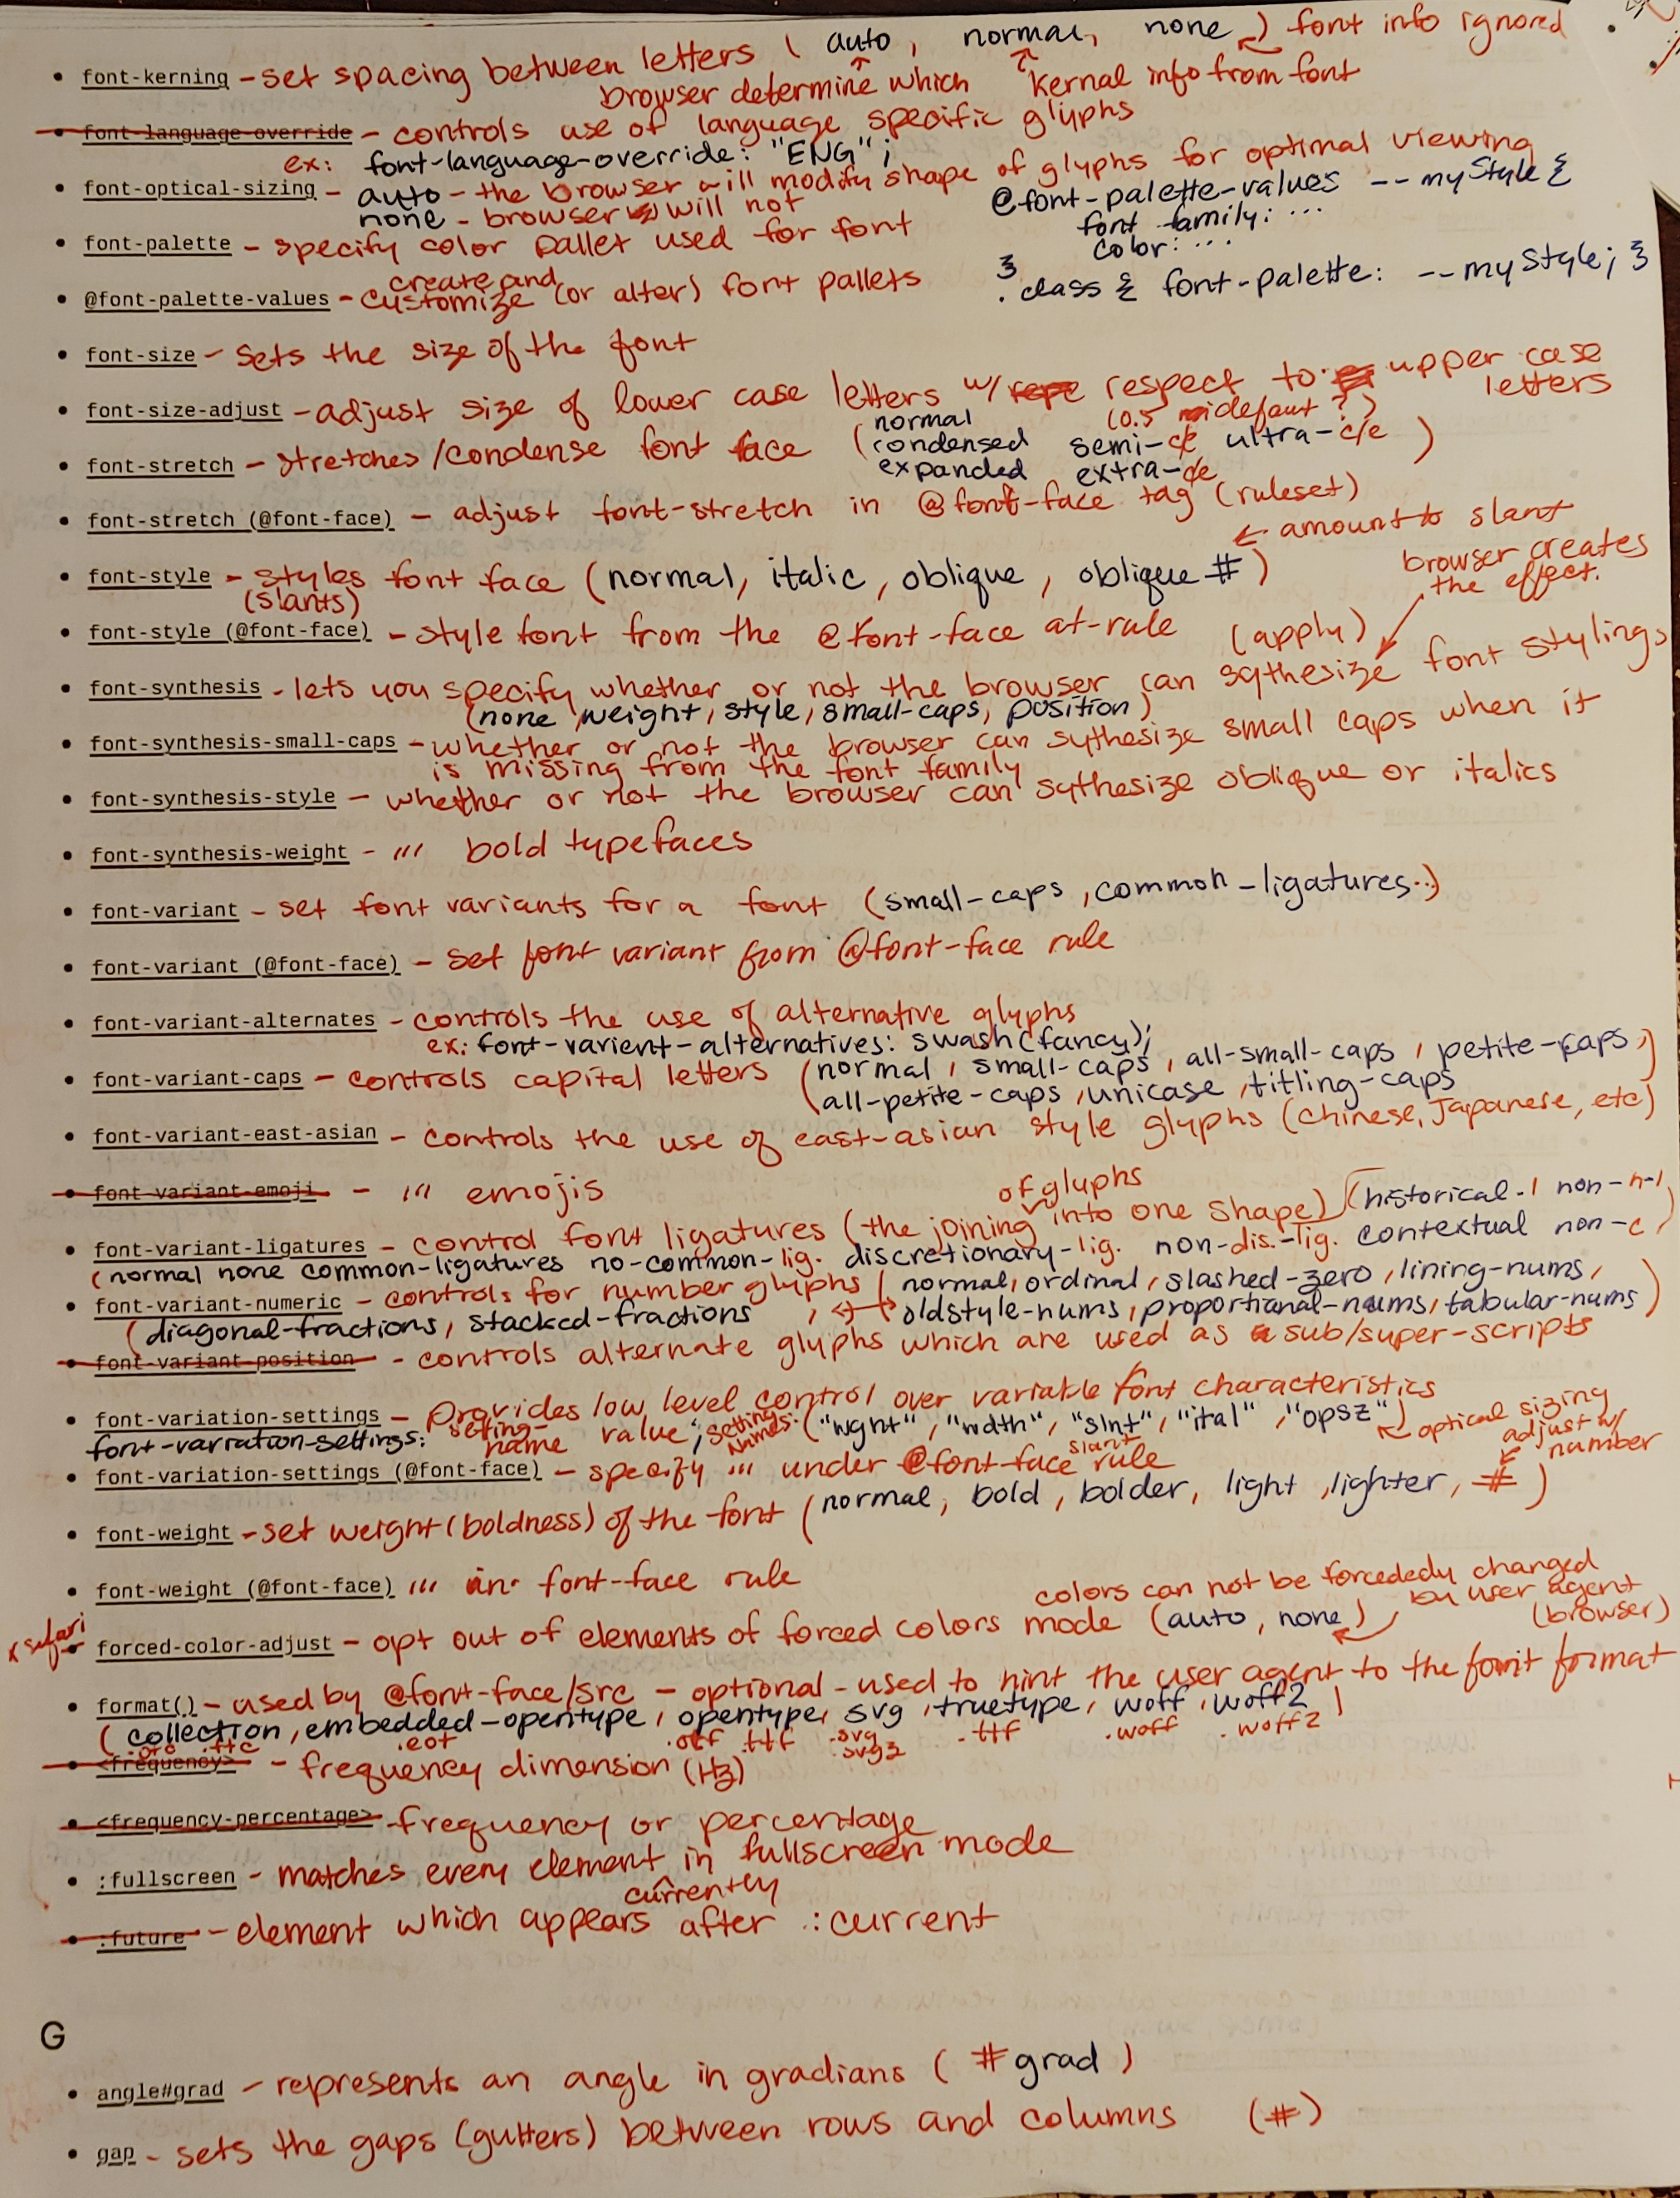 • font-kerning - set spacing between letters ( auto, normal, none ) font info ignored
browser determine which kernal info from font
• font-language-override - controls use of language specific glyphs
ex: font-language-override: "ENG";
• font-optical-sizing - auto - the browser will modify shape of glyphs for optimal viewing
none - browser will not
@font-palette-values --myStyle {
font family: ...
color: ...
}
.class { font-palette: --myStyle; }
• font-palette - specify color pallet used for font
• @font-palette-values - create and customize (or alter) font pallets
• font-size - sets the size of the font
• font-size-adjust - adjust size of lower case letters w/ respect to upper case letters
(0.5 defaut?)
• font-stretch - stretches/condense font face ( normal condensed expanded semi-c/e extra-c/e ultra-c/e )
• font-stretch (@font-face) - adjust font-stretch in @font-face tag (ruleset)
• font-style - styles font face (normal, italic, oblique, oblique #) ← amount to slant
(slants)
• font-style (@font-face) - style font from the @font-face at-rule (apply)
browser creates the effect.
• font-synthesis - lets you specify whether or not the browser can sythesize font stylings
(none, weight, style, small-caps, position)
• font-synthesis-small-caps - whether or not the browser can sythesize small caps when it
is missing from the font family
• font-synthesis-style - whether or not the browser can sythesize oblique or italics
• font-synthesis-weight - ''' bold typefaces
• font-variant - set font variants for a font (small-caps, common-ligatures..)
• font-variant (@font-face) - set font variant from @font-face rule
• font-variant-alternates - controls the use of alternative glyphs
ex: font-varient-alternatives: swash(fancy);
• font-variant-caps - controls capital letters (normal, small-caps, all-small-caps, petite-caps,
all-petite-caps, unicase, titling-caps)
• font-variant-east-asian - controls the use of east-asian style glyphs (Chinese, Japanese, etc)
• font-variant-emoji - ''' emojis
• font-variant-ligatures - control font ligatures (the joining of glyphs into one shape) (historical-l non-h-l,
(normal none common-ligatures no-common-lig. discretionary-lig. non-dis.-lig. contextual non-c )
• font-variant-numeric - controls for number glyphs ( normal, ordinal, slashed-zero, lining-nums,
oldstyle-nums, proportional-nums, tabular-nums )
( diagonal-fractions, stacked-fractions
• font-variant-position - controls alternate glyphs which are used as sub/super-scripts
• font-variation-settings - provides low level control over variable font characteristics
font-variation-settings: setting-name value; setting names: ("wght", "wdth", "slnt", "ital", "opsz") optical sizing
slant
• font-variation-settings (@font-face) - specify ''' under @font-face rule
adjust w/ number
• font-weight - set weight (boldness) of the font (normal, bold, bolder, light, lighter, #)
• font-weight (@font-face) ''' in font-face rule
colors can not be forcededly changed by user agent (browser)
x safari
• forced-color-adjust - opt out of elements of forced colors mode (auto, none)
• format() - used by @font-face/src - optional - used to hint the user agent to the font format
( collection, embedded-opentype, opentype, svg, truetype, woff, woff2 )
.otc .ttc .eot .otf .ttf .svg .svgz .ttf .woff .woff2
• <frequency> - frequency dimension (Hz)
• <frequency-percentage> frequency or percentage
• :fullscreen - matches every element currently in fullscreen mode
• :future - element which appears after :current
G
• angle#grad - represents an angle in gradians ( #grad )
• gap - sets the gaps (gutters) between rows and columns (#)